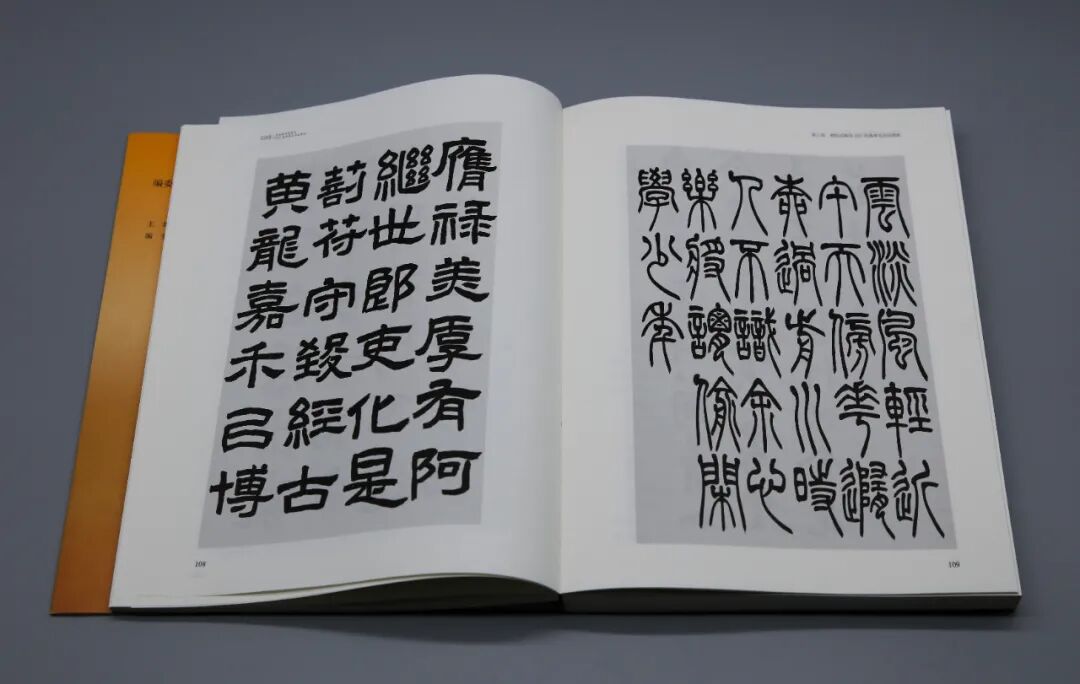 編委
主
編
膺禄美厚有阿
繼世郎吏化是
苻守經古
黄龍嘉禾已博
108
雲淡風輕近
午天傍花隨
柳過前川時
人不識余心
樂將謂偷閑
學少年
109